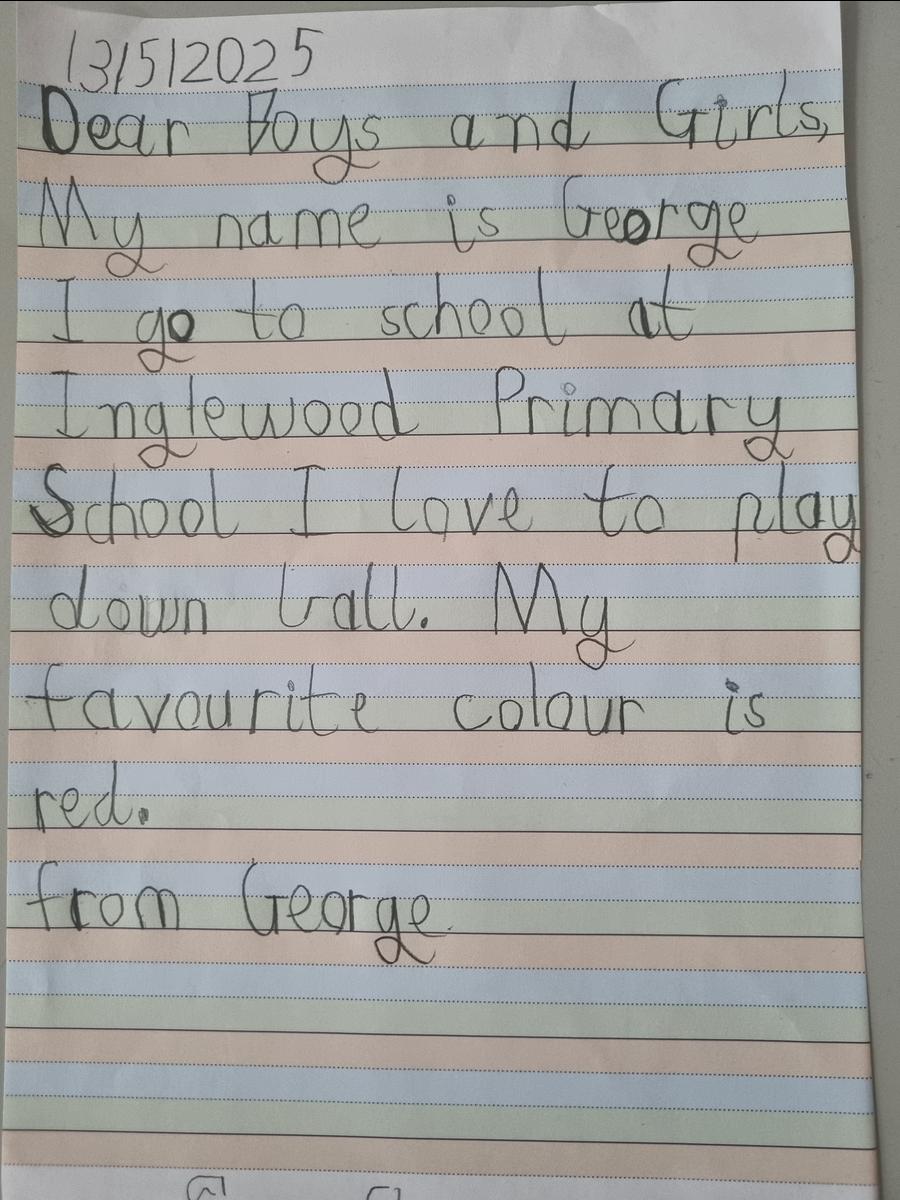 13/5/2025
Dear Boys and Girls,
My name is George
I go to school at
Inglewood Primary
School I love to play
down ball. My
favourite colour is
red.
from George